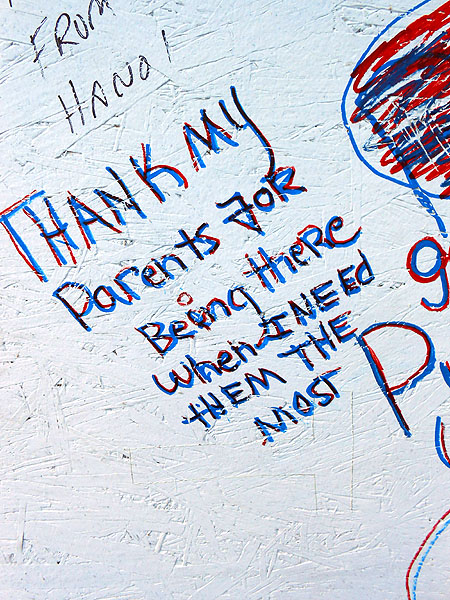 FROM
HANOI
THANK MY
parents FOR
Being there
when I NEEd
tHEM THE
MOST